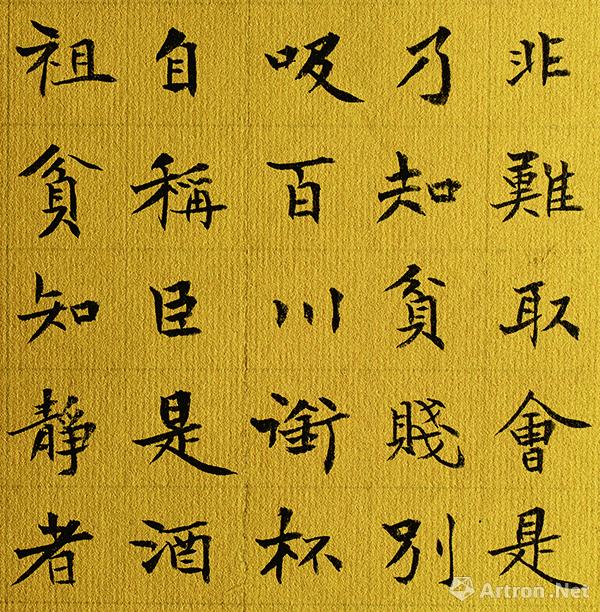 非難取會是
乃知貧賤別
吸百川銜杯
自稱臣是酒
祖貧知靜者
Artron.Net